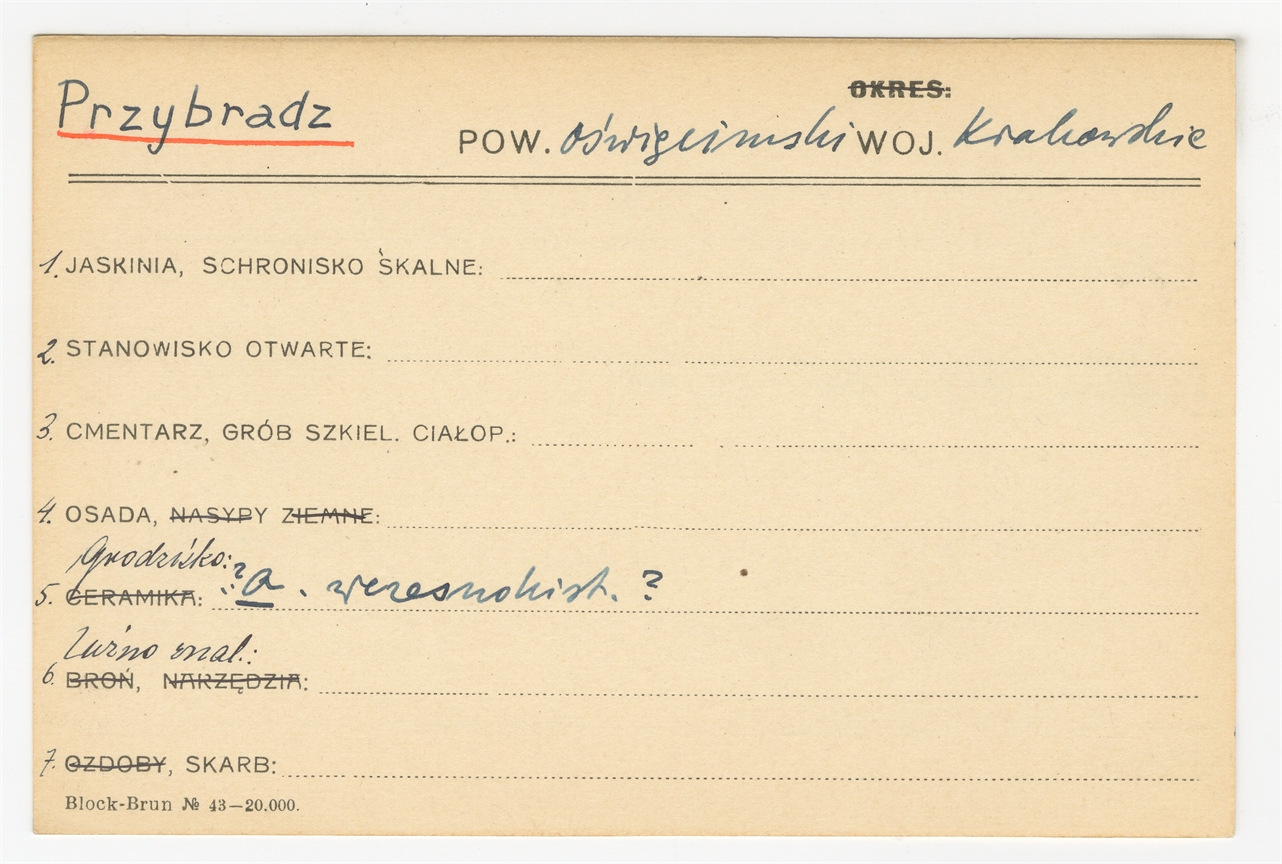 Przybradz
OKRES:
POW. oświęcimski WOJ. Krakowskie
1. JASKINIA, SCHRONISKO SKALNE:
2. STANOWISKO OTWARTE:
3. CMENTARZ, GRÓB SZKIEL. CIAŁOP.:
4. OSADA, NASYPY ZIEMNE:
Grodzisko:
5. CERAMIKA: ? a. wczesnohist. ?
Luźno znal.:
6. BROŃ, NARZĘDZIA:
7. OZDOBY, SKARB:
Block-Brun № 43—20.000.